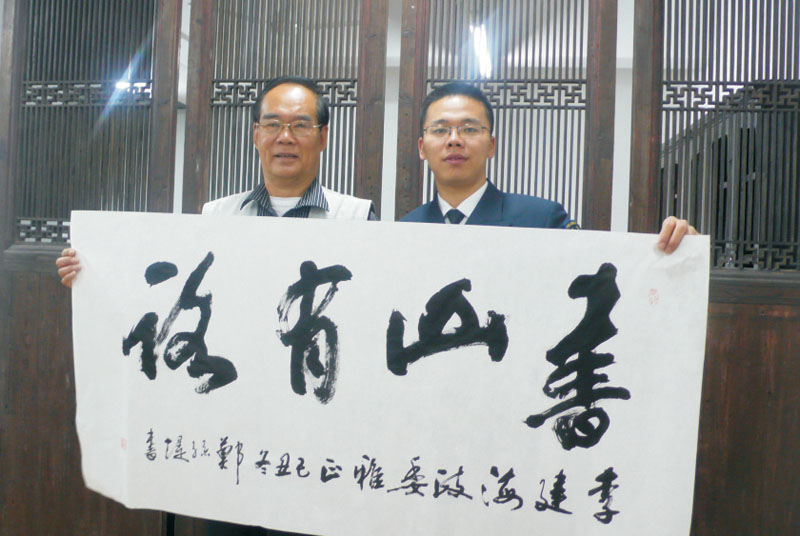 書山有路
李建海政委雅正己丑冬鄭孫堤書